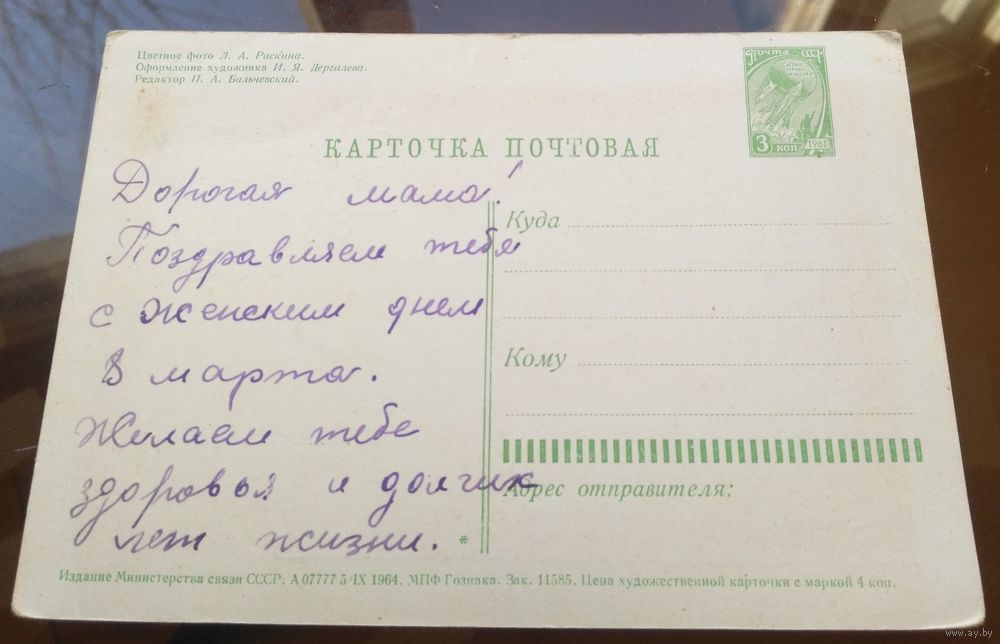 Цветное фото Л. А. Раскина.
Оформление художника И. Я. Дергилева.
Редактор П. А. Бальчевский.
Почта СССР
3 коп
1961
КАРТОЧКА ПОЧТОВАЯ
Дорогая мама!
Поздравляем тебя
с женским днем
8 марта.
Желаем тебе
здоровья и долгих
лет жизни. *
Куда
Кому
Адрес отправителя:
Издание Министерства связи СССР. А 07777 5/IX 1964. МПФ Гознака. Зак. 11585. Цена художественной карточки с маркой 4 коп.
www.ay.by